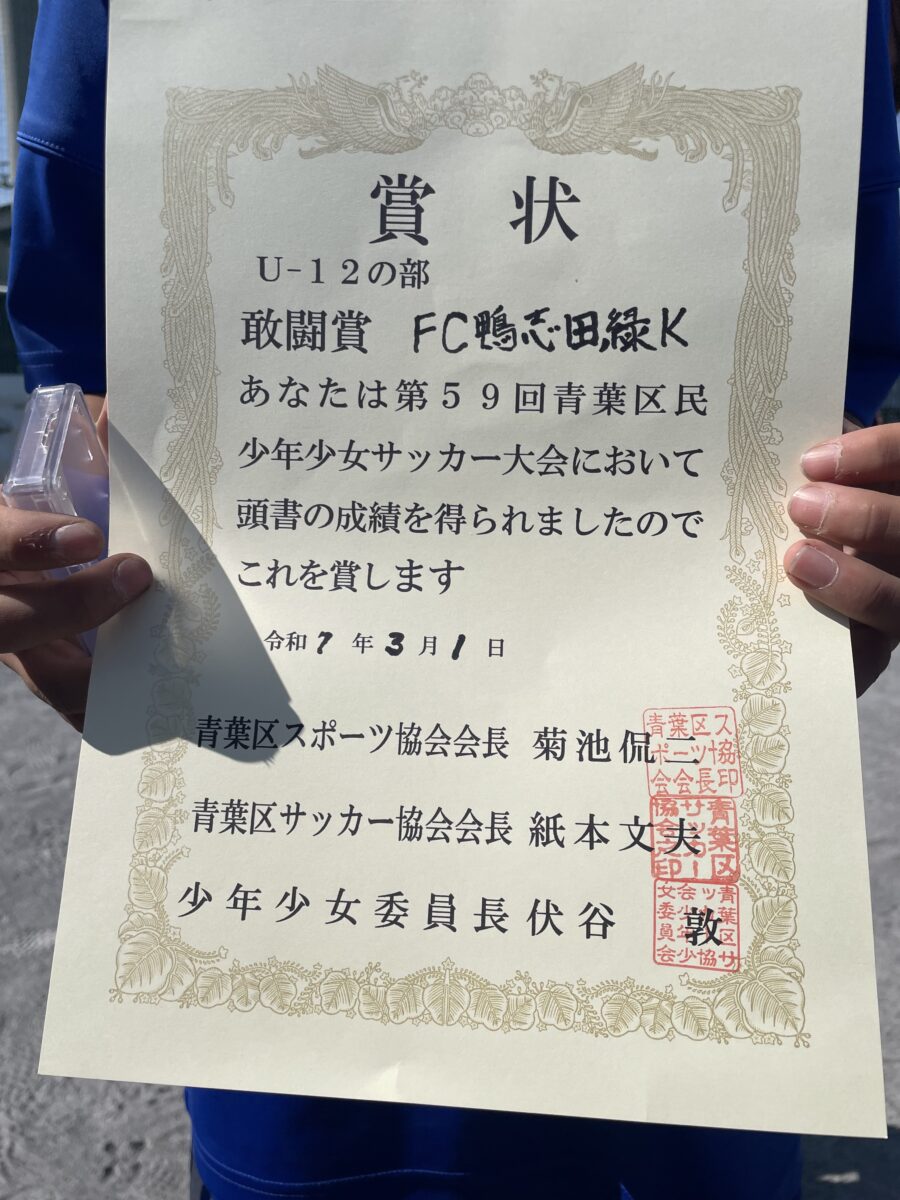 賞状
U-12の部
敢闘賞 FC鴨志田緑K
あなたは第59回青葉区民
少年少女サッカー大会において
頭書の成績を得られましたので
これを賞します
令和7年3月1日
青葉区スポーツ協会会長 菊池侃二
青葉区スポーツ協会会長印
青葉区サッカー協会会長 紙本文夫
少年少女委員長 伏谷 敦